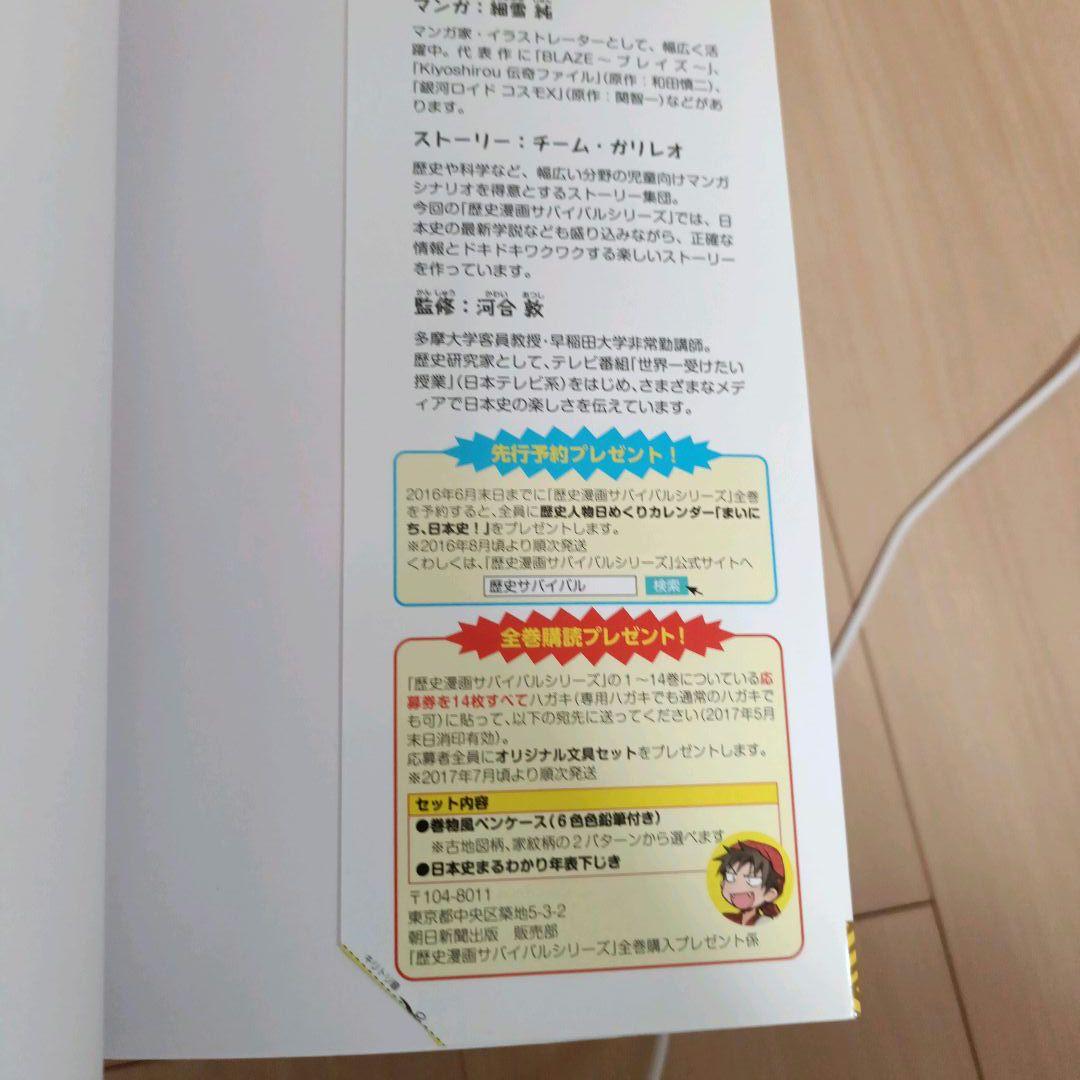 マンガ：細雪 純
マンガ家・イラストレーターとして、幅広く活
躍中。代表作に「BLAZE～ブレイズ～」、
「Kiyoshirou 伝奇ファイル」（原作：和田慎二）、
「銀河ロイド コスモX」（原作：関智一）などがあ
ります。
ストーリー：チーム・ガリレオ
歴史や科学など、幅広い分野の児童向けマンガ
シナリオを得意とするストーリー集団。
今回の「歴史漫画サバイバルシリーズ」では、日
本史の最新学説なども盛り込みながら、正確な
情報とドキドキワクワクする楽しいストーリー
を作っています。
かんしゅう かわい あつし
監修：河合 敦
多摩大学客員教授・早稲田大学非常勤講師。
歴史研究家として、テレビ番組「世界一受けたい
授業」（日本テレビ系）をはじめ、さまざまなメデ
ィアで日本史の楽しさを伝えています。
先行予約プレゼント！
2016年6月末日までに「歴史漫画サバイバルシリーズ」全巻
を予約すると、全員に歴史人物日めくりカレンダー「まいに
ち、日本史！」をプレゼントします。
※2016年8月頃より順次発送
くわしくは、「歴史漫画サバイバルシリーズ」公式サイトへ
歴史サバイバル 検索
全巻購読プレゼント！
「歴史漫画サバイバルシリーズ」の1～14巻についている応
募券を14枚すべてハガキ（専用ハガキでも通常のハガキで
も可）に貼って、以下の宛先に送ってください（2017年5月
末日消印有効）。
応募者全員にオリジナル文具セットをプレゼントします。
※2017年7月頃より順次発送
セット内容
●巻物風ペンケース（6色色鉛筆付き）
※古地図柄、家紋柄の2パターンから選べます
●日本史まるわかり年表下じき
〒104-8011
東京都中央区築地5-3-2
朝日新聞出版　販売部
「歴史漫画サバイバルシリーズ」全巻購入プレゼント係
キリトリ線